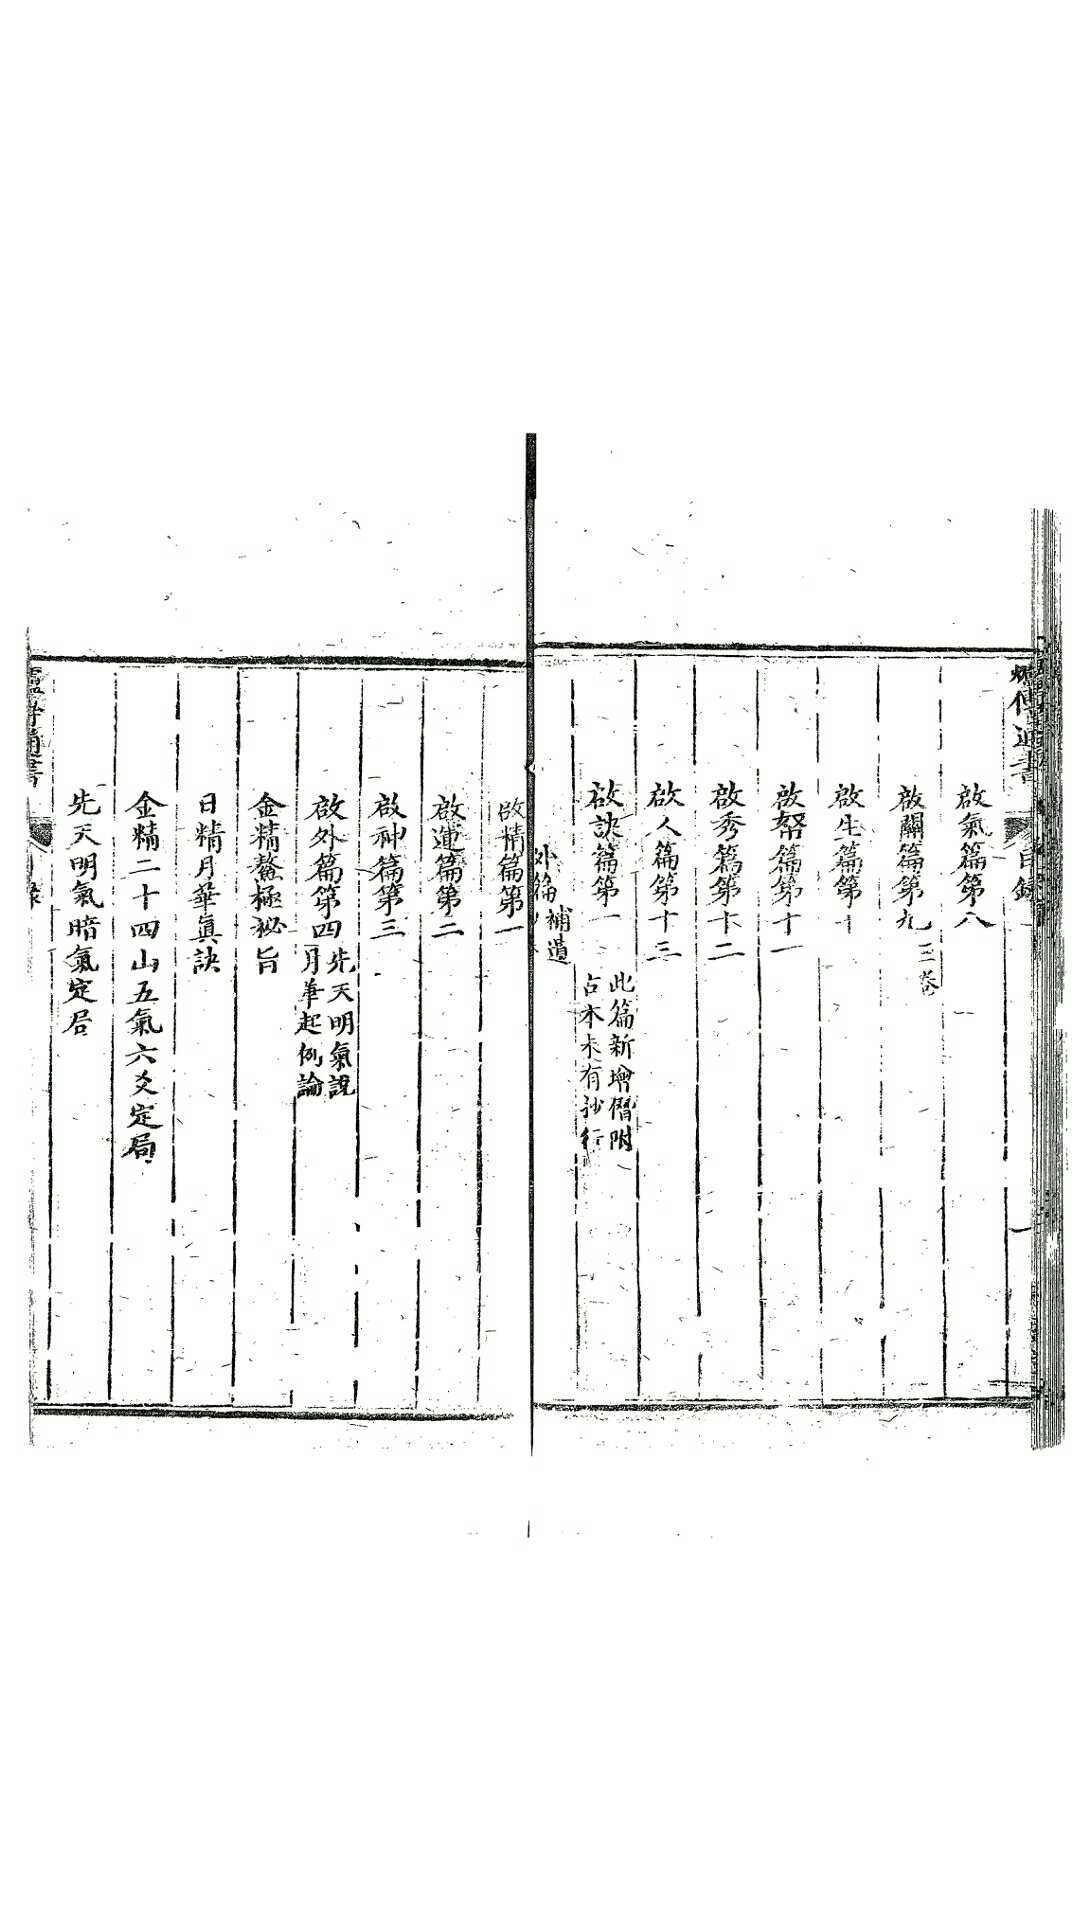 啟氣篇第八
啟關篇第九
三卷
啟生篇第十
啟弩篇第十一
啟秀篇第十二
啟人篇第十三
啟訣篇第一
此篇新增僭附
古本未有抄行
外篇
補遺
啟精篇第一
啟運篇第二
啟神篇第三
啟外篇第四
先天明氣說
月華起例論
金精鰲極祕旨
日精月華眞訣
金精二十四山五氣六爻定局
先天明氣暗氣定局
通書
目錄